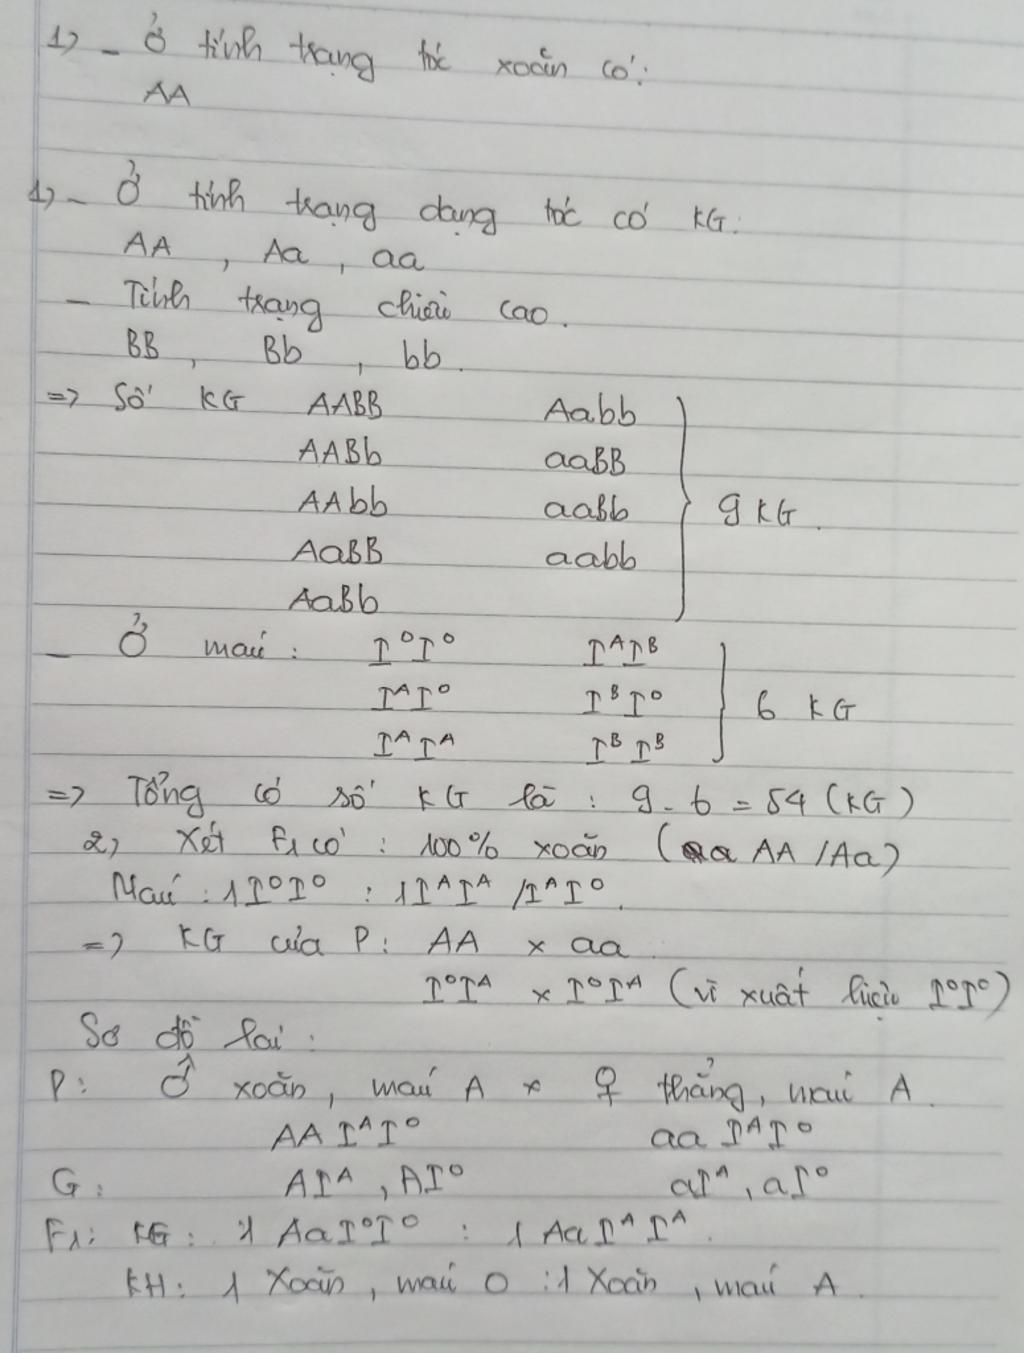 1) - Ở tính trạng tóc xoăn có:
AA
1) - Ở tính trạng dạng tóc có KG:
AA , Aa , aa
- Tính trạng chiều cao.
BB , Bb , bb.
=> Số KG AABB Aabb
AABb aaBB
AAbb aaBb 9 KG.
AaBB aabb
AaBb
- Ở máu : I^O I^O I^A I^B
I^A I^O I^B I^O 6 KG
I^A I^A I^B I^B
=> Tổng có số KG là : 9 . 6 = 54 (KG)
2) Xét F1 có : 100% xoăn ( AA /Aa)
Máu : 1 I^O I^O : 1 I^A I^A / I^A I^O.
=> KG của P: AA x aa.
I^O I^A x I^O I^A (vì xuất hiện I^O I^O)
Sơ đồ lai :
P: ♂ xoăn, máu A x ♀ thẳng, máu A.
AA I^A I^O aa I^A I^O
G: A I^A , A I^O a I^A , a I^O
F1: KG: 1 Aa I^O I^O : 1 Aa I^A I^A.
KH: 1 Xoăn, máu O : 1 Xoăn, máu A.